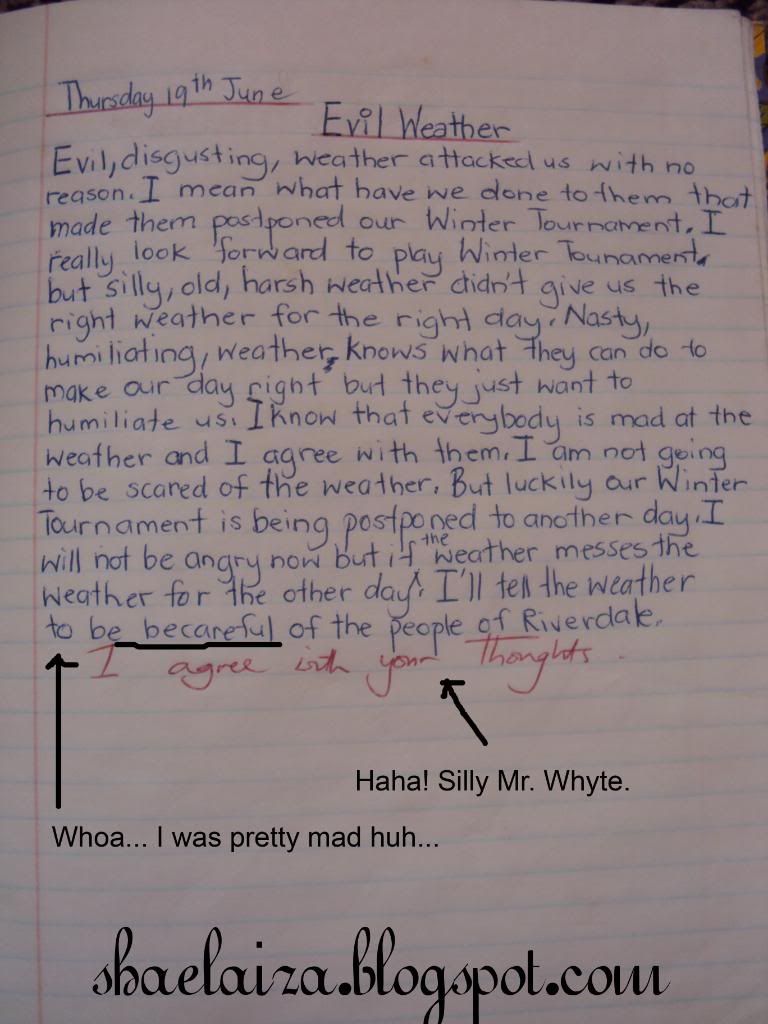 Thursday 19th June
Evil Weather
Evil, disgusting, weather attacked us with no
reason. I mean what have we done to them that
made them postponed our Winter Tournament. I
really look forward to play Winter Tounament,
but silly, old, harsh weather didn't give us the
right weather for the right day. Nasty,
humiliating, weather, knows what they can do to
make our day right but they just want to
humiliate us. I know that everybody is mad at the
weather and I agree with them. I am not going
to be scared of the weather. But luckily our Winter
Tournament is being postponed to another day. I
will not be angry now but if the weather messes the
weather for the other day, I'll tell the weather
to be becareful of the people of Riverdale.
I agree with your thoughts.
Haha! Silly Mr. Whyte.
Whoa... I was pretty mad huh...
shaelaiza.blogspot.com